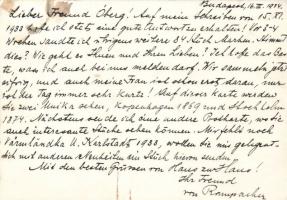 Budapest, 16. III. 1934.
Lieber Freund Öberg! Auf mein Schreiben von 15. XI.
1933 habe ich stets eine gute Antworten erhalten! Vor 3-4
Wochen sandte ich übrigens weitere Stück Marken. Kamen
diese? Wie geht es Ihnen und Ihren Lieben? Ich hoffe das Be-
ste, was ich auch bei uns melden darf. Wir
und auch meine Frau ist schon erst daran,
der Tag immer sehr kurz! Auf dieser Karte werden
Sie zwei Unika sehen, Kopenhagen 1869 und Stockholm
1874. Nächstens sende ich eine andere Postkarte, wo Sie
auch interessante Stücke sehen können. Mir fehlt noch
Värmländska A. Karlstadt 1933, wollen Sie mir gelegent-
lich mit anderen Neuheiten ein Stück hievon senden?
Mit den besten Grüssen von Haus zu Haus!
Ihr Freund
von